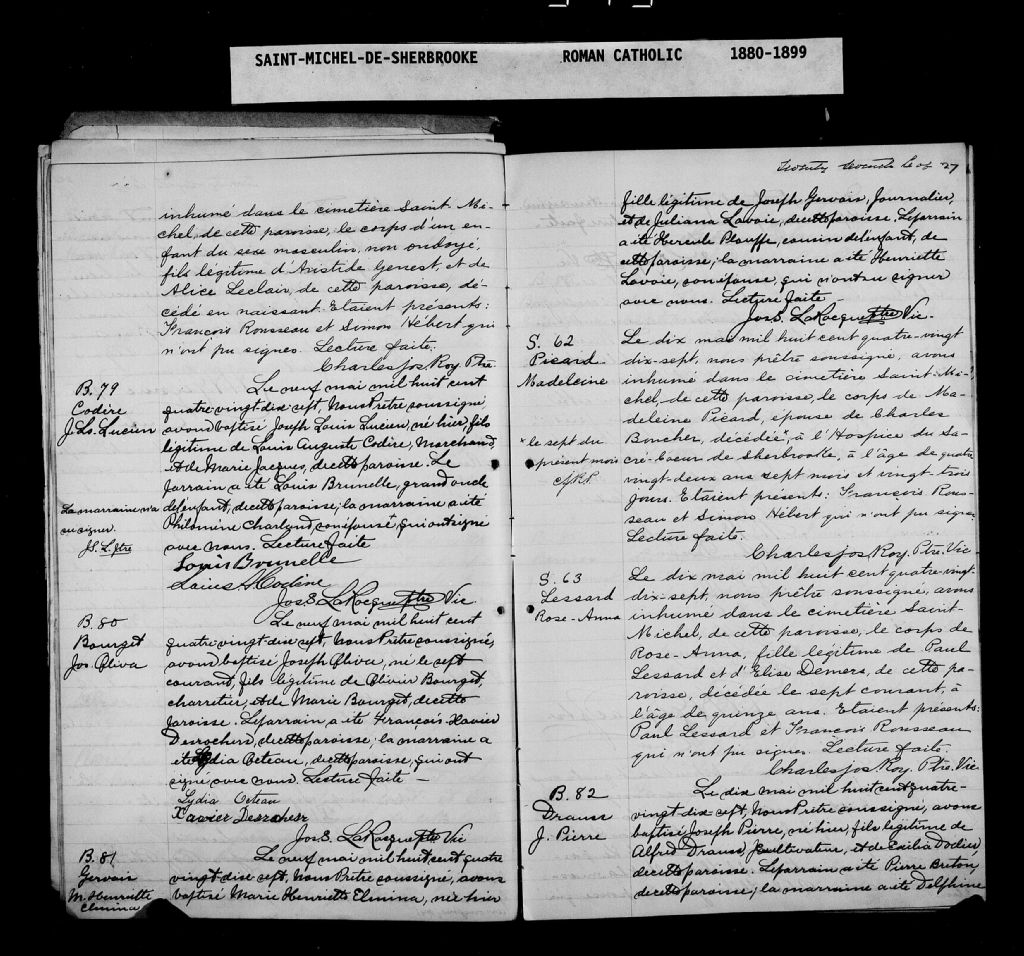 SAINT-MICHEL-DE-SHERBROOKE ROMAN CATHOLIC 1880-1899
inhumé dans le cimetière Saint-Mi-
chel, de cette paroisse, le corps d'un en-
fant du sexe masculin, non ondoyé,
fils légitime d'Aristide Genest, et de
Alice Leclair, de cette paroisse, dé-
cédé en naissant. Etaient présents:
François Rousseau et Simon Hébert qui
n'ont pu signer. Lecture faite.
Charles Jos Roy Ptre
B. 79
Codère
J. Ls. Lucien
Le neuf mai mil huit cent
quatre vingt dix sept, Nous Prêtre soussigné,
avons baptisé Joseph Louis Lucien, né hier, fils
légitime de Louis Auguste Codère, Marchand,
et de Marie Jacques, de cette paroisse. Le
parrain a été Louis Brunelle, grand oncle
de l'enfant, de cette paroisse; la marraine a été
Philomène Charland, son épouse, qui ont signé
avec nous. Lecture faite
La marraine n'a
su signer.
J.S. L. Ptre
Louis Brunelle
Louis A Codère
Jos. S. LaRocque Ptre Vic
B. 80
Bourget
Jos. Oliva
Le neuf mai mil huit cent
quatre-vingt dix sept, Nous Prêtre soussigné,
avons baptisé Joseph Oliva, né le sept
courant, fils légitime de Olivier Bourget,
charretier, et de Marie Bourget, de cette
paroisse. Le parrain a été François Xavier
Desrochers, de cette paroisse; la marraine a
été Lydia Octeau, de cette paroisse, qui ont
signé avec nous. Lecture faite —
Lydia Octeau
Xavier Desrochers
Jos. S. LaRocque Ptre Vic
B. 81
Gervais
M. Henriette
Elmina
Le neuf mai mil huit cent quatre
vingt dix sept, Nous Prêtre soussigné, avons
baptisé Marie Henriette Elmina, née hier
27
fille légitime de Joseph Gervais, Journalier,
et de Juliana Lavoie, de cette paroisse. Le parrain
a été Hercule Plouffe, cousin de l'enfant, de
cette paroisse; la marraine a été Henriette
Lavoie, son épouse, qui n'ont su signer
avec nous. Lecture faite —
Jos. S. LaRocque Ptre Vic.
S. 62
Picard
Madeleine
Le dix mai mil huit cent quatre-vingt
dix-sept, nous prêtre soussigné, avons
inhumé dans le cimetière Saint-Mi-
chel, de cette paroisse, le corps de Ma-
deleine Picard, epouse de Charles
Boucher, décédée*, à l'Hospice du Sa-
cré-Coeur de Sherbrooke, à l'âge de quatre
vingt-deux ans sept mois et vingt-trois
jours. Etaient présents: François Rous-
seau et Simon Hébert qui n'ont pu signer
Lecture faite.
* le sept du
présent mois
Charles Jos Roy, Ptre. Vic
S. 63
Lessard
Rose-Anna
Le dix mai mil huit cent quatre-vingt-
dix-sept, nous prêtre soussigné, avons
inhumé dans le cimetière Saint-
Michel, de cette paroisse, le corps de
Rose-Anna, fille legitime de Paul
Lessard et d'Elise Demers, de cette pa-
roisse, décédée le sept courant, à
l'âge de quinze ans. Etaient présents:
Paul Lessard et François Rousseau
qui n'ont pu signer. Lecture faite.
Charles Jos Roy. Ptre. Vic
B. 82
J. Pierre
Le dix mai mil huit cent quatre-
vingt dix sept, Nous Prêtre soussigné, avons
baptisé Joseph Pierre, né hier, fils légitime de
Alfred cultivateur, et de
de cette paroisse. Le parrain a été Pierre Breton,
de cette paroisse; la marraine a été Delphine